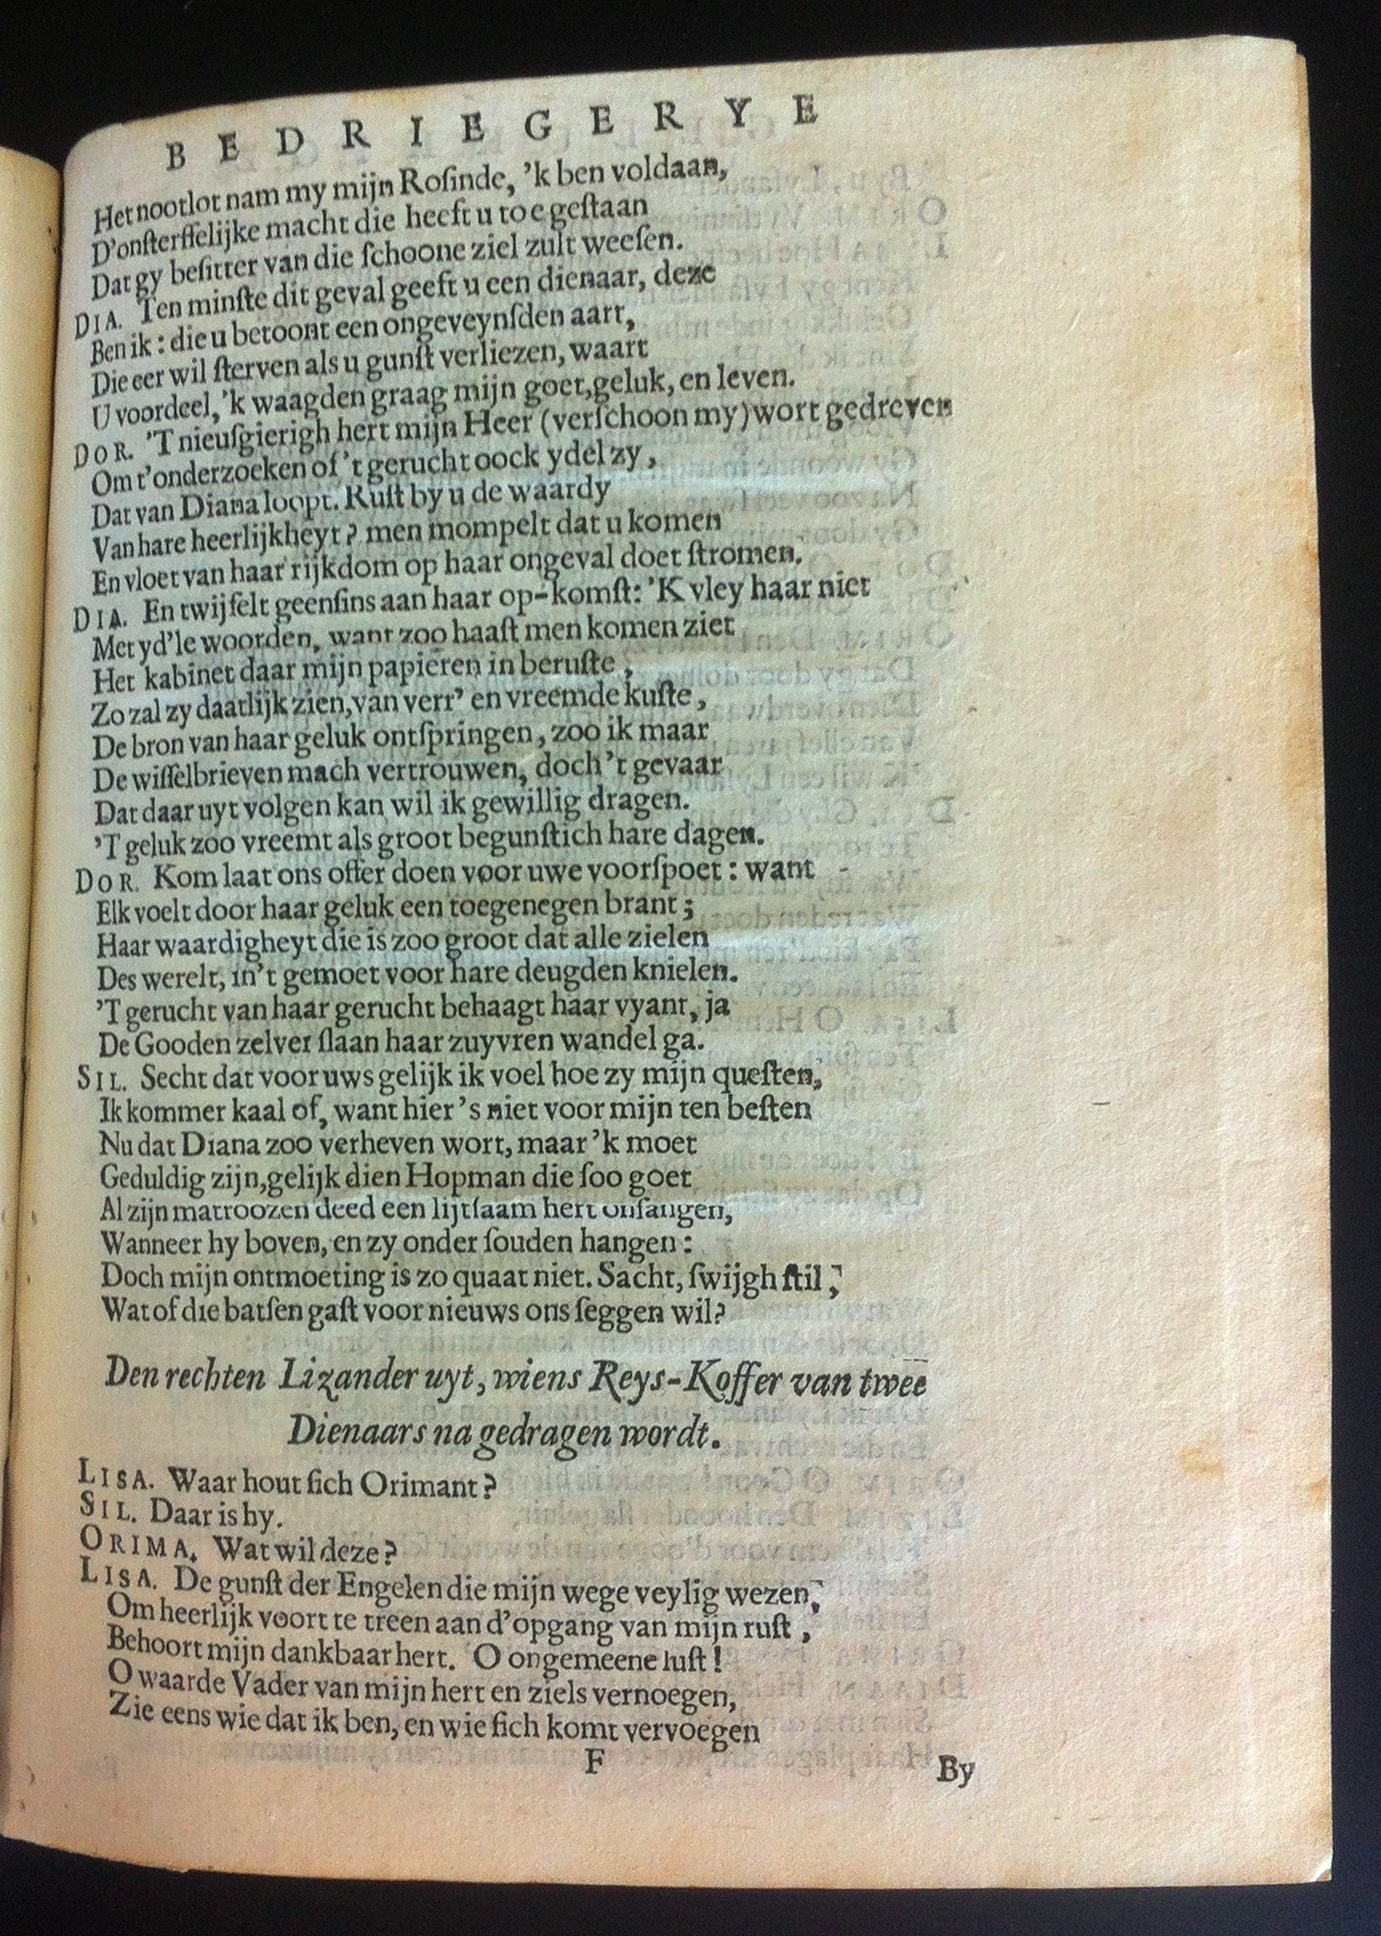 BEDRIEGERYE
Het nootlot nam my mijn Roſinde, 'k ben voldaan,
D'onſterffelijke macht die heeft u toegeſtaan
Dat gy beſitter van die ſchoone ziel zult weeſen.
DIA. Ten minſte dit geval geeft u een dienaar, deze
Ben ik: die u betoont een ongeveynſden aart,
Die eer wil ſterven als u gunſt verliezen, waart
U voordeel, 'k waagden graag mijn goet, geluk, en leven.
DOR. 'T nieuſgierigh hert mijn Heer (verſchoon my) wort gedreven
Om t'onderzoeken of 't gerucht oock ydel zy,
Dat van Diana loopt. Ruſt by u de waardy
Van hare heerlijkheyt? men mompelt dat u komen
En vloet van haar rijkdom op haar ongeval doet ſtromen.
DIA. En twijfelt geenſins aan haar op-komſt: 'K vley haar niet
Met yd'le woorden, want zoo haaſt men komen ziet
Het kabinet daar mijn papieren in beruſte,
Zo zal zy daatlijk zien, van verr' en vreemde kuſte,
De bron van haar geluk ontſpringen, zoo ik maar
De wiſſelbrieven mach vertrouwen, doch 't gevaar
Dat daar uyt volgen kan wil ik gewillig dragen.
'T geluk zoo vreemt als groot begunſtich hare dagen.
DOR. Kom laat ons offer doen voor uwe voorſpoet: want
Elk voelt door haar geluk een toegenegen brant;
Haar waardigheyt die is zoo groot dat alle zielen
Des werelt, in't gemoet voor hare deugden knielen.
'T gerucht van haar gerucht behaagt haar vyant, ja
De Gooden zelver ſlaan haar zuyvren wandel ga.
SIL. Secht dat voor uws gelijk ik voel hoe zy mijn queſten,
Ik kommer kaal of, want hier 's niet voor mijn ten beſten
Nu dat Diana zoo verheven wort, maar 'k moet
Geduldig zijn, gelijk dien Hopman die ſoo goet
Al zijn matroozen deed een lijtſaam hert onfangen,
Wanneer hy boven, en zy onder ſouden hangen:
Doch mijn ontmoeting is zo quaat niet. Sacht, ſwijgh ſtil,
Wat of die batſen gaſt voor nieuws ons ſeggen wil?
Den rechten Lizander uyt, wiens Reys-Koffer van twee
Dienaars na gedragen wordt.
LISA. Waar hout ſich Orimant?
SIL. Daar is hy.
ORIMA. Wat wil deze?
LISA. De gunſt der Engelen die mijn wege veylig wezen,
Om heerlijk voort te treen aan d'opgang van mijn ruſt,
Behoort mijn dankbaar hert. O ongemeene luſt!
O waarde Vader van mijn hert en ziels vernoegen,
Zie eens wie dat ik ben, en wie ſich komt vervoegen
F
By